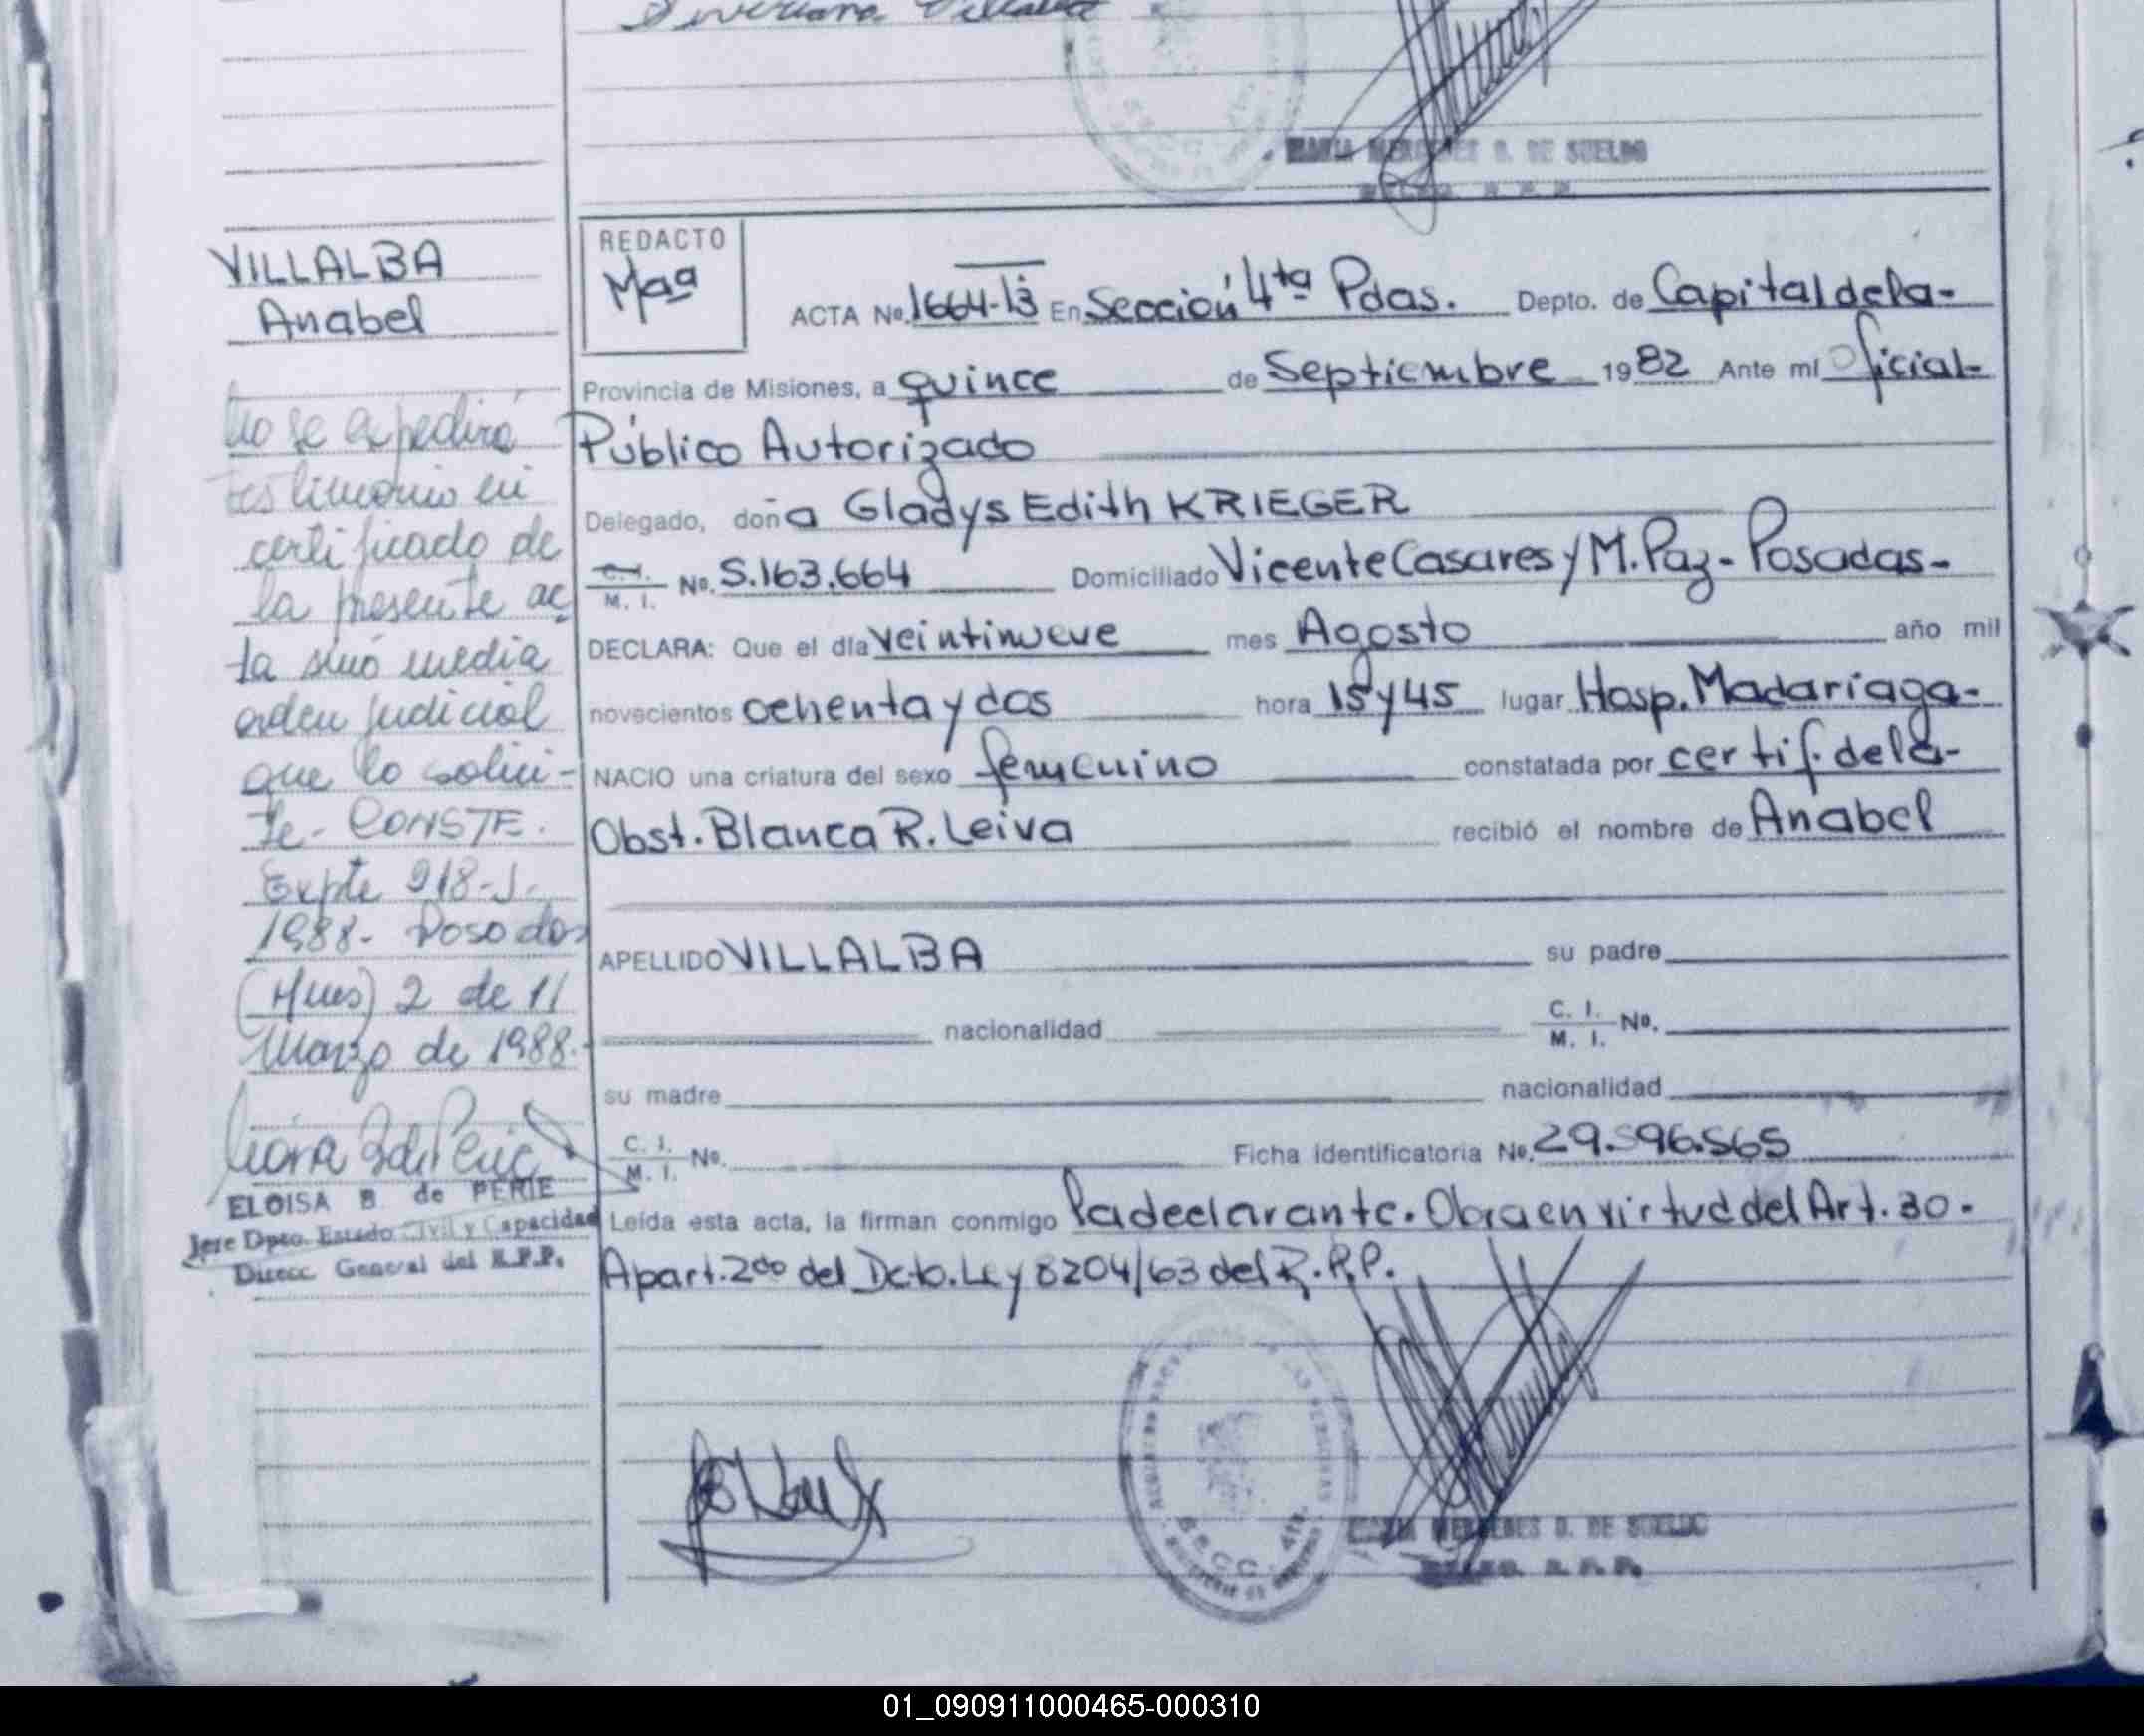 Villalba
MARIA MERCEDES D. DE SUELDO
VILLALBA
Anabel
No se expedirá
testimonio ni
certificado de
la presente ac
ta sinó media
orden judicial
que lo solici-
te- CONSTE.
Expte 918-J-
1988- Posadas
(Mnes) 2 de 11
Marzo de 1988.
ELOISA B. de PERIE
Jefe Dpto. Estado Civil y Capacidad
Direcc. General del R.P.P.
REDACTO
Maª
ACTA Nº. 1664-13 En Sección 4ta Pdas. Depto. de Capital de la-
Provincia de Misiones, a quince de Septiembre 1982 Ante mí Oficial-
Público Autorizado
Delegado, doña Gladys Edith KRIEGER
C.I. M. I. Nº. 5.163.664 Domiciliado Vicente Casares y M. Paz- Posadas-
DECLARA: Que el día veintinueve mes Agosto año mil
novecientos ochenta y dos hora 15 y 45 lugar Hosp. Madariaga-
NACIO una criatura del sexo femenino constatada por certif. de la-
Obst. Blanca R. Leiva recibió el nombre de Anabel
APELLIDO VILLALBA su padre
nacionalidad C. I. M. I. Nº.
su madre nacionalidad
C. I. M. I. Nº. Ficha identificatoria Nº. 29.596.565
Leída esta acta, la firman conmigo la declarante. Obra en virtud del Art. 30.
Apart. 2do del Dcto. Ley 8204/63 del R.P.P.
MARIA MERCEDES D. DE SUELDO
01_090911000465-000310